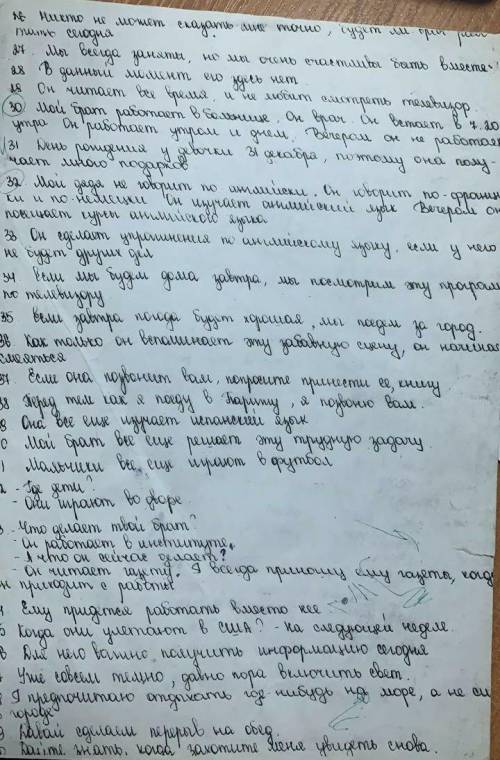 26 Никто не может сказать мне точно, будет ли
сегодня
27. Мы всегда заняты, но мы очень счастливы быть вместе.
28 В данный момент его здесь нет
29 Он читает все время, и не любит смотреть телевизор.
30 Мой брат работает в больнице. Он врач. Он встает в 7.20
утра Он работает утром и днем. Вечером он не работае
31 День рождения у девочки 31 декабря, поэтому она полу-
чает много подарков
32 Мой дядя не говорит по английски. Он говорит по-францу
ки и по-немецки Он изучает английский язык Вечером он
посещает курсы английского языка
33 Он сделает упражнения по английскому языку, если у него
не будет других дел
34 Если мы будем дома завтра, мы посмотрим эту програм
по телевизору
35 Если завтра погода будет хорошая, мы поедем за город.
36 Как только он вспоминает эту забавную сцену, он начинае
смеяться
37. Если она позвонит вам, попросите принести ее, книгу
38 Перед тем как я поеду в Париж, я позвоню вам.
9 Она все еще изучает испанский язык
0 Мой брат все еще решает эту трудную задачу.
1 Мальчики все еще играют в футбол
2 - Где дети?
- Они играют во дворе
3 - Что делает твой брат?
- Он работает в институте.
- А что он сейчас делает?
- Он читает газету. Я всегда приношу ему газеты, когда
он приходит с работы
4 Ему придется работать вместо нее
5 Когда они улетают в США? - На следующей неделе.
6 Для него важно получить информацию сегодня
7 Уже совсем темно, давно пора включить свет.
8 Я предпочитаю отдыхать где-нибудь на море, а не
в городе
9 Давай сделаем перерыв на обед.
0 Дайте знать, когда захотите меня увидеть снова.